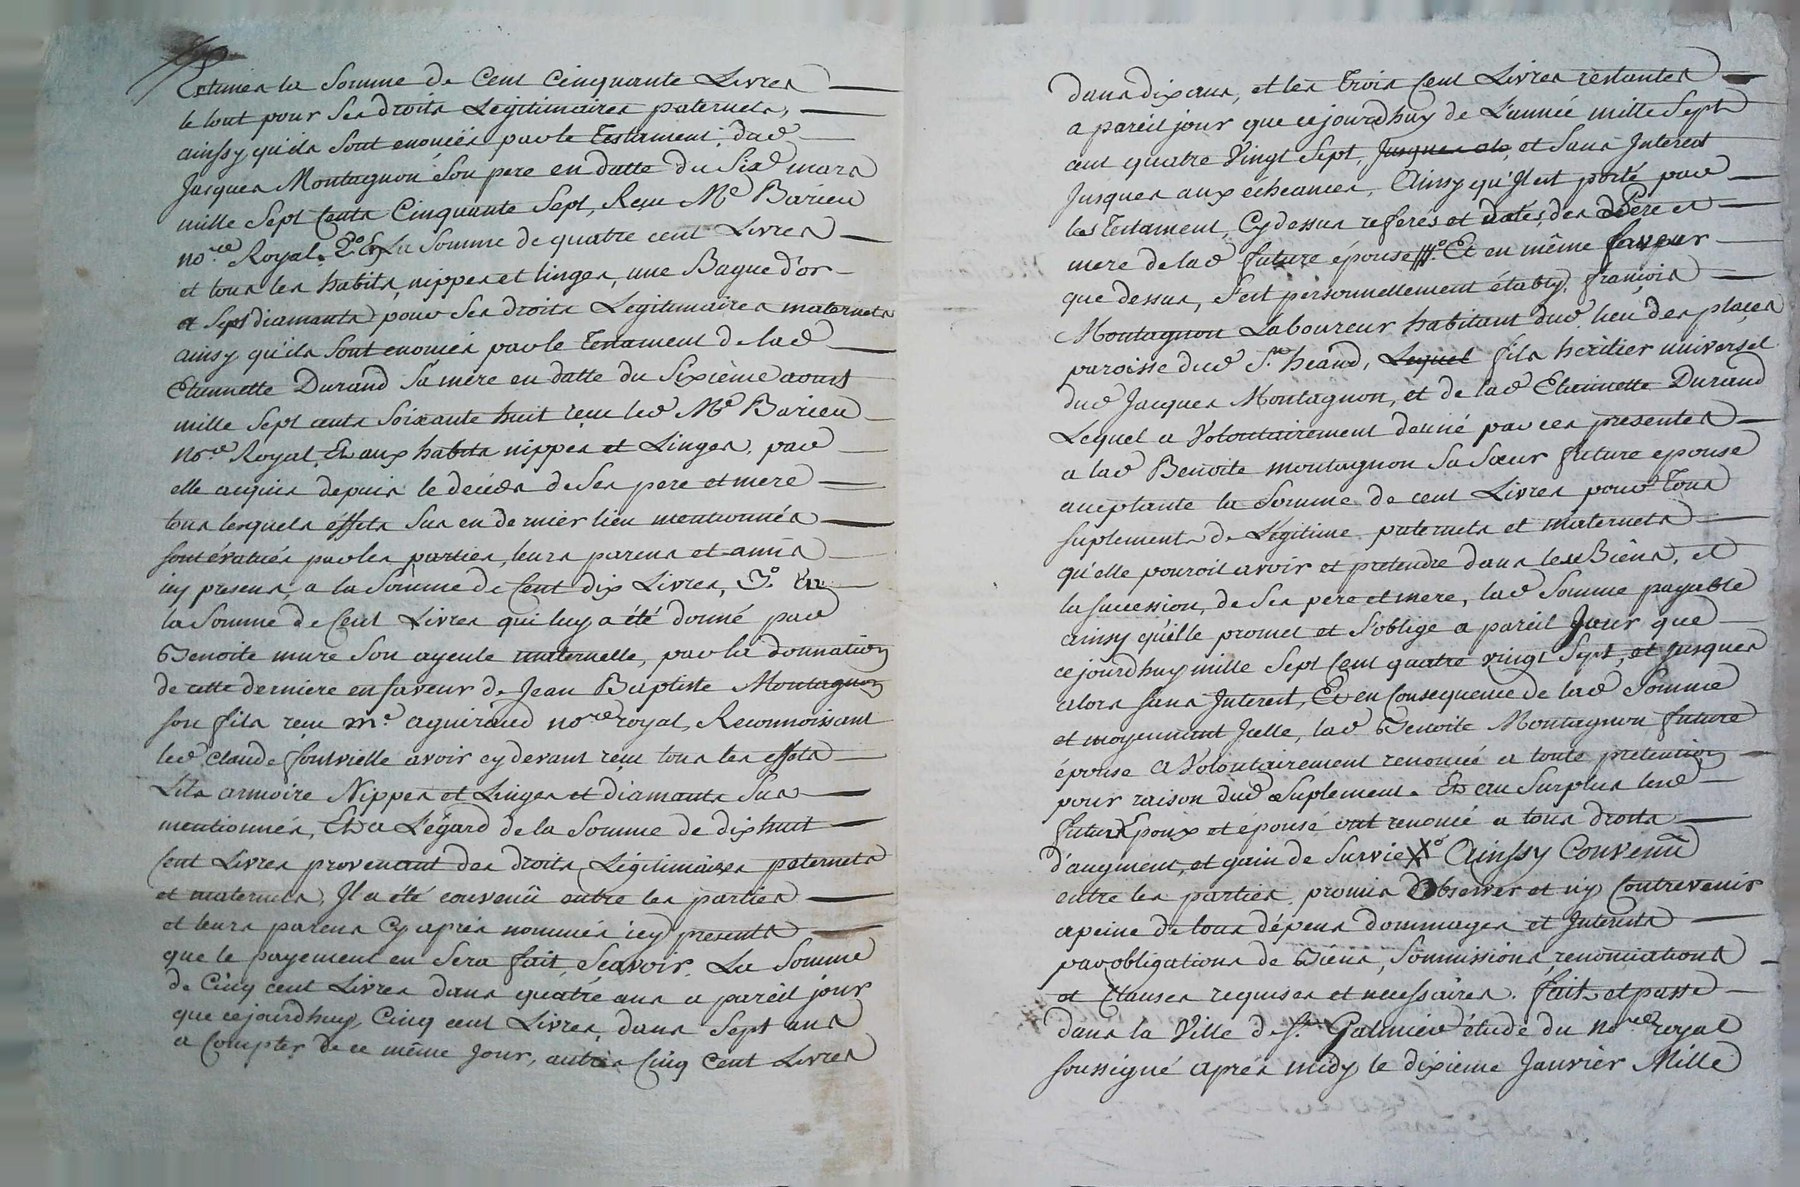 Estimés la Somme de Cent Cinquante Livres
le tout pour Ses droits Légitimaires paternels,
ainssy qu'ils Sont enoncés par le Testament, dud
Jacques Montagnon Son pere en datte du Six mars
mille Sept Cents Cinquante Sept, Reçu Me Barieu
nore Royal. 2o La Somme de quatre cent Livres
et tous les habits, nippes et linges, une Bague d'or
et Sept diamants pour Ses droits Légitimaires maternels
ainsy qu'ils Sont enoncés par le Testament de lad
Etiennette Durand Sa mère en datte du Sixième aoust
mille Sept cents Soixante huit reçu led Me Barieu
nore Royal, Et aux habits nippes et Linges, par
elle acquis depuis le décéds de Ses pere et mere
tous lesquels éffets Sus en dernier lieu mentionnés
sont évalués par les parties, leurs parens et amis
icy presens, a la Somme de Cent dix Livres, 3o En
la Somme de Cent Livres qui luy a été donné par
Benoite mure Son ayeule maternelle, par la donnation
de cette derniere en faveur de Jean Baptiste Montagnon
son fils reçu Me aguiraud nore royal, Reconnoissant
led Claude fontvielle avoir cy devant reçu tous les effets
Lits armoire Nippes et Linges et diamants Sus
mentionnés, Et a L'égard de la Somme de dix huit
Cent Livres provenant des droits Légitimaires paternels
et maternels, Il a été convenü entre les parties
et leurs parens Cy après nommés icy presents
que le payement en Sera fait, Scavoir, La Somme
de Cinq cent Livres dans quatre ans a pareil jour
que cejourdhuy, Cinq cent Livres dans Sept ans
a Compter de ce même Jour, autres Cinq Cent Livres
dans dix ans, et les Trois Cent Livres restantes
a pareil jour que cejourdhuy de L'année mille Sept
cent quatre Vingt Sept, et Sans Interest
Jusques aux échéances, Ainsy qu'Il est porté par
les Testament, Cy dessus referés et datés, des père et
mere de lad future épouse Et en même faveur
que dessus, S'est personnellement étably, françois
Montagnon Laboureur habitant dud lieu des plaçes
paroisse dud St heand, Lequel fils héritier universel
dud Jacques Montagnon, et de lad Etiennette Durand
Lequel a Volontairement donné par ces presentes
a lad Benoite montagnon Sa Sœur future epouse
acceptante la Somme de cent Livres pour Tous
suplements de Légitime paternels et maternels
qu'elle pouroit avoir et pretendre dans les Biens, et
la succession, de Ses pere et mere, lad Somme payable
ainsy qu'elle promet et s'oblige a pareil Jour que
cejourdhuy mille Sept Cent quatre vingt Sept, et Jusques
alors sans Interest, Et en Consequence de lad Somme
et moyennant Icelle, lad Benoite Montagnon future
épouse a Volontairement renoncé a toute pretention
pour raison dud Suplement. Et au Surplus lesd
futurs Epoux et épouse ont renoncé a tous droits
d'augment, et gain de Survie Ainssy Convenü
entre les parties, promis d'observer et n'y Contrevenir
a peine de tous dépens dommages et Interests
par obligations de Biens, Soumissions, renonciations
et Clauses requises et necessaires. fait et passé
dans la Ville de St Galmier étude du nore royal
soussigné après midy le dixieme Janvier Mille